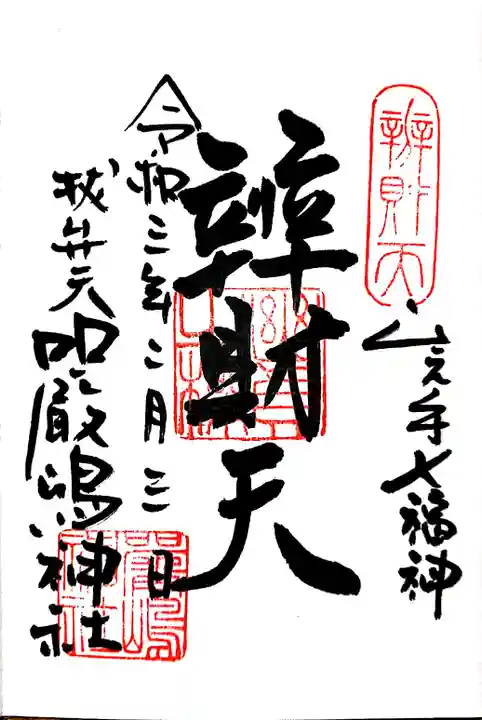 辨財天
山之手七福神
辨財天
令和三年二月三日
抜弁天嚴嶋神社
嚴嶋神社